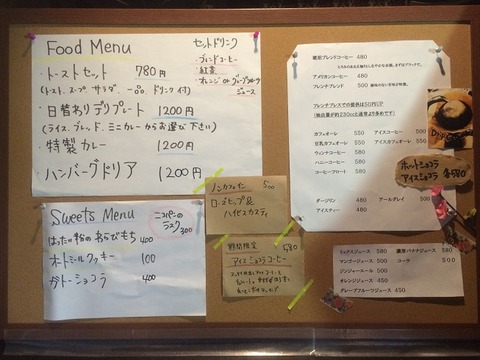 Food Menu
・トーストセット 780円
(トースト、スープ、サラダ 一品、ドリンク付)
・日替わりデリプレート 1200円
(ライス、ブレッド、ミニカレーからお選び下さい)
・特製カレー 1200円
・ハンバーグドリア 1200円
セットドリンク
・ブレンドコーヒー
・紅茶
・オレンジorグレープフルーツ
ジュース
Sweets Menu
ラスク
300
はったい粉のわらびもち 400
オートミルクッキー 100
ガトーショコラ 400
ノンカフェイン 500
ローズヒップ&
ハイビスカスティ
期間限定 580
アイスショコラコーヒー
琥珀ブレンドコーヒー 480
アメリカンコーヒー 480
フレンチブレンド 480
フレンチプレスでの提供は50円UP
カフェオーレ 550 アイスコーヒー 500
豆乳カフェオーレ 550 アイスカフェオーレ 550
ウィンナコーヒー 580
ハニーコーヒー 580
コーヒーフロート 580
ダージリン 480 アールグレイ 500
アイスティー 480
ホットショコラ
アイスショコラ 各580
ミックスジュース 580 濃厚バナナジュース 580
マンゴージュース 500 コーラ 500
ジンジャーエール 500
オレンジジュース 450
グレープフルーツジュース 450